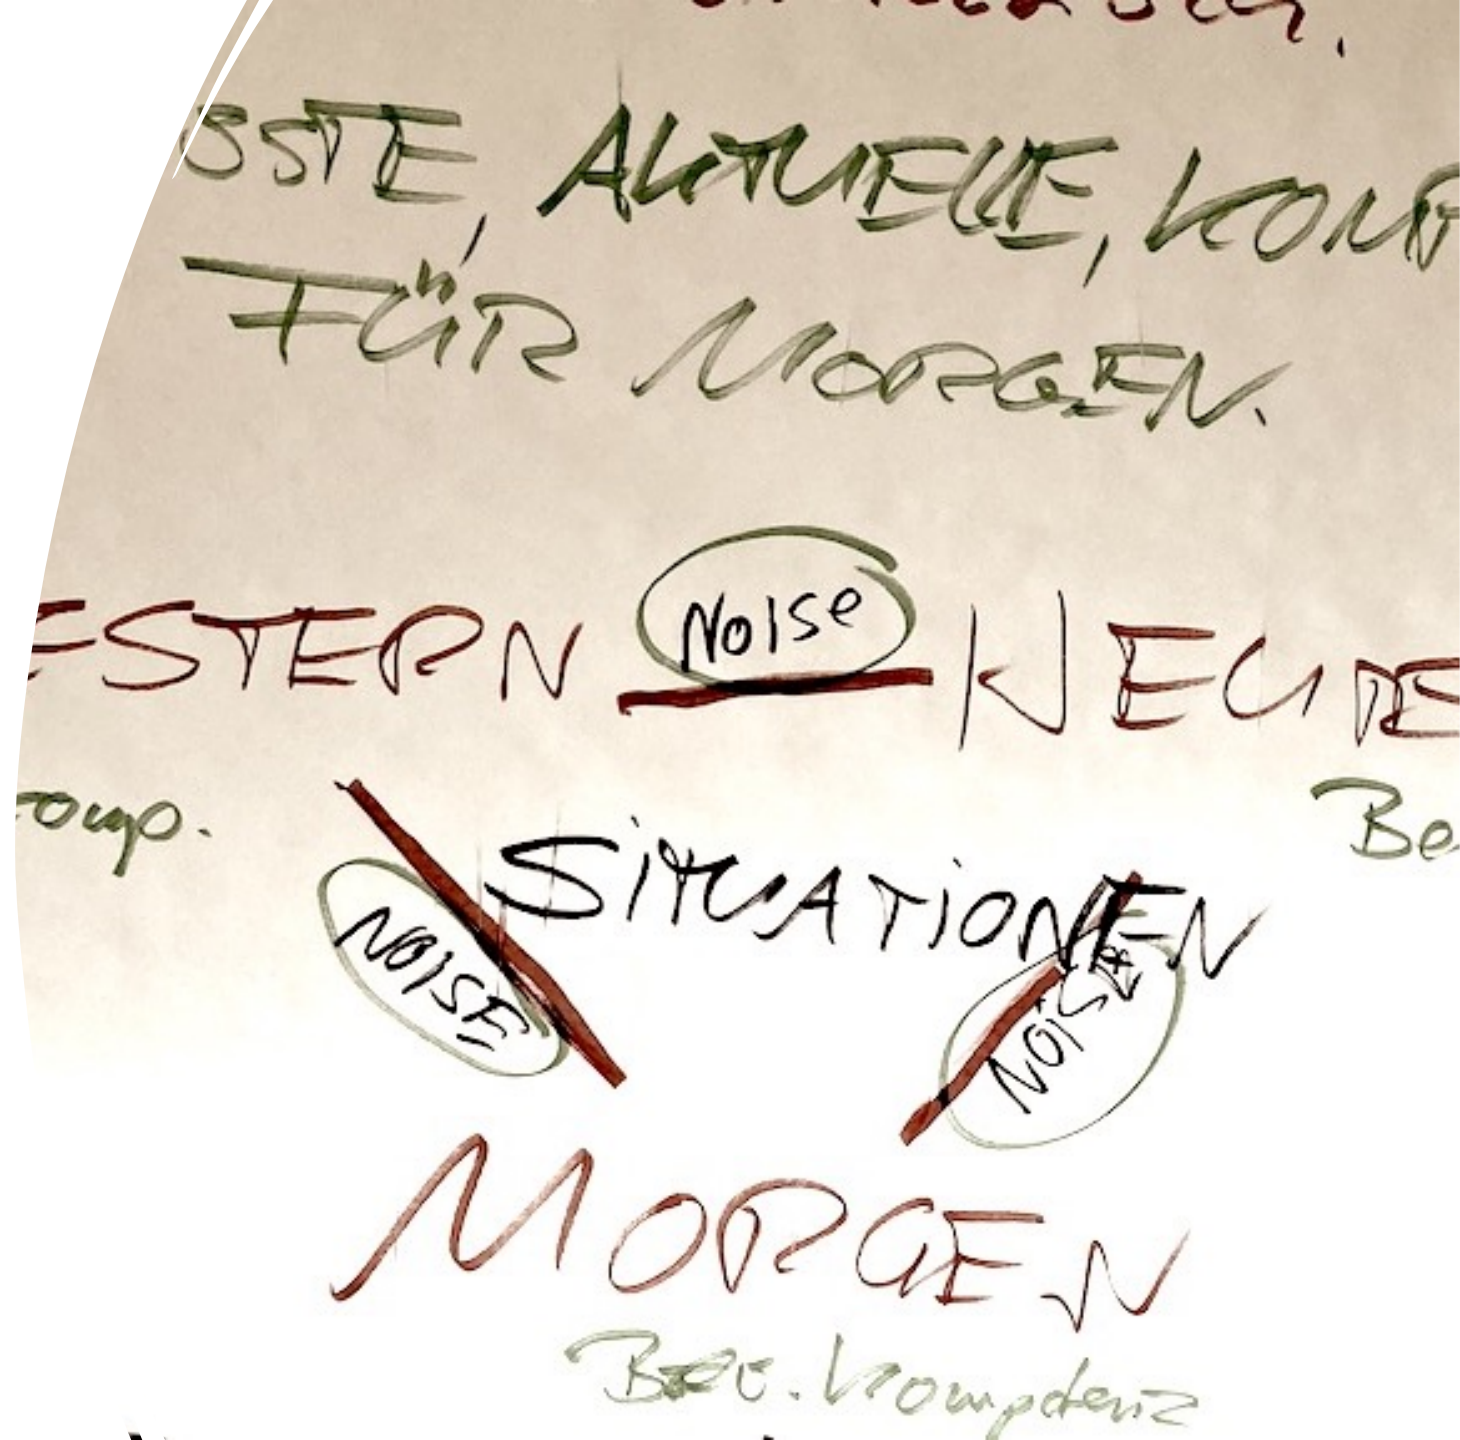 SSTE, AKTUELLE, KOMP
FÜR MORGEN.
NOISe
ESTERN HEUTE
omp. Be
SITUATIONEN
NOISE NOISE
MORGEN
Kompetenz